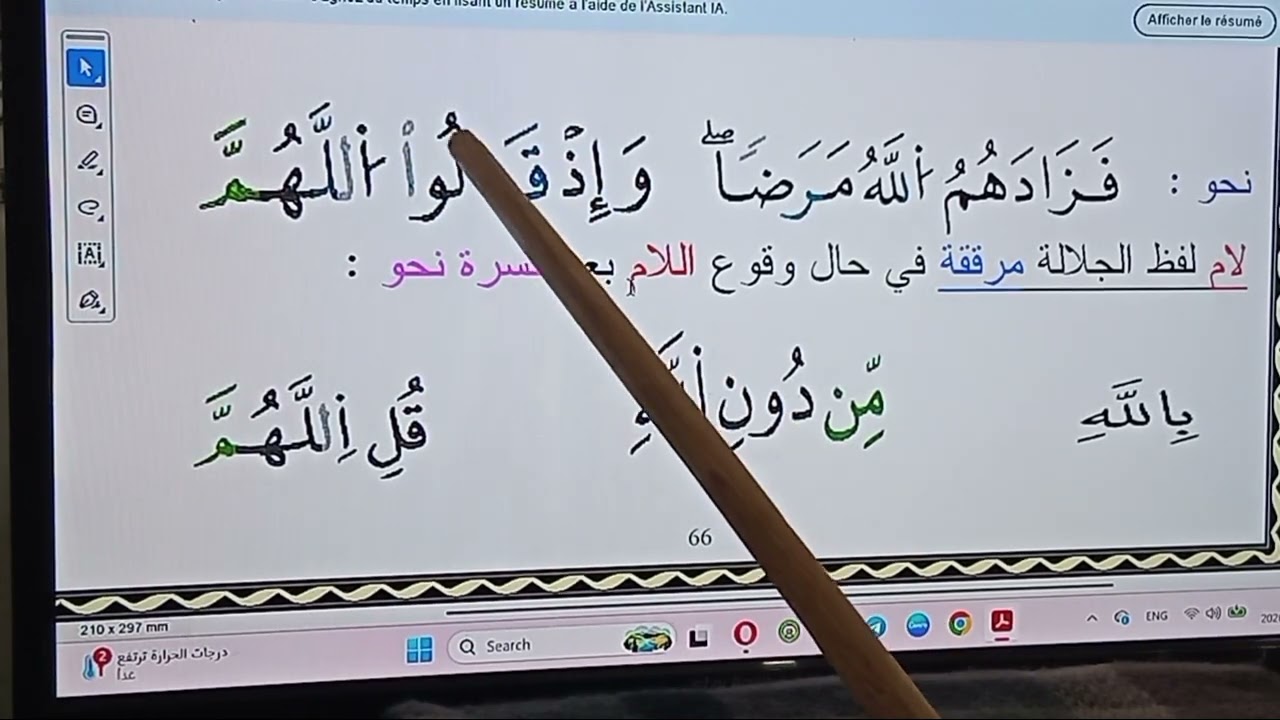 temps en lisant un résumé à l'aide de l'Assistant IA.
Afficher le résumé
نحو : فَزَادَهُمُ ٱللَّهُ مَرَضًاۖ وَإِذْ قَالُوا۟ ٱللَّهُمَّ
لام لفظ الجلالة مرققة في حال وقوع اللام نحو :
بِاللَّهِ مِّن دُونِ قُلِ اِللَّهُمَّ
66
210 x 297 mm
Search
ENG
درجات الحرارة ترتفع
غداً
2